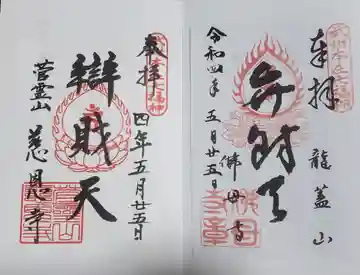 奉拝
龍蓋山
弁財天
佛母寺
令和四年
五月廿五日
奉拝
四年五月廿五日
辯財天
菅霊山
慈恩寺